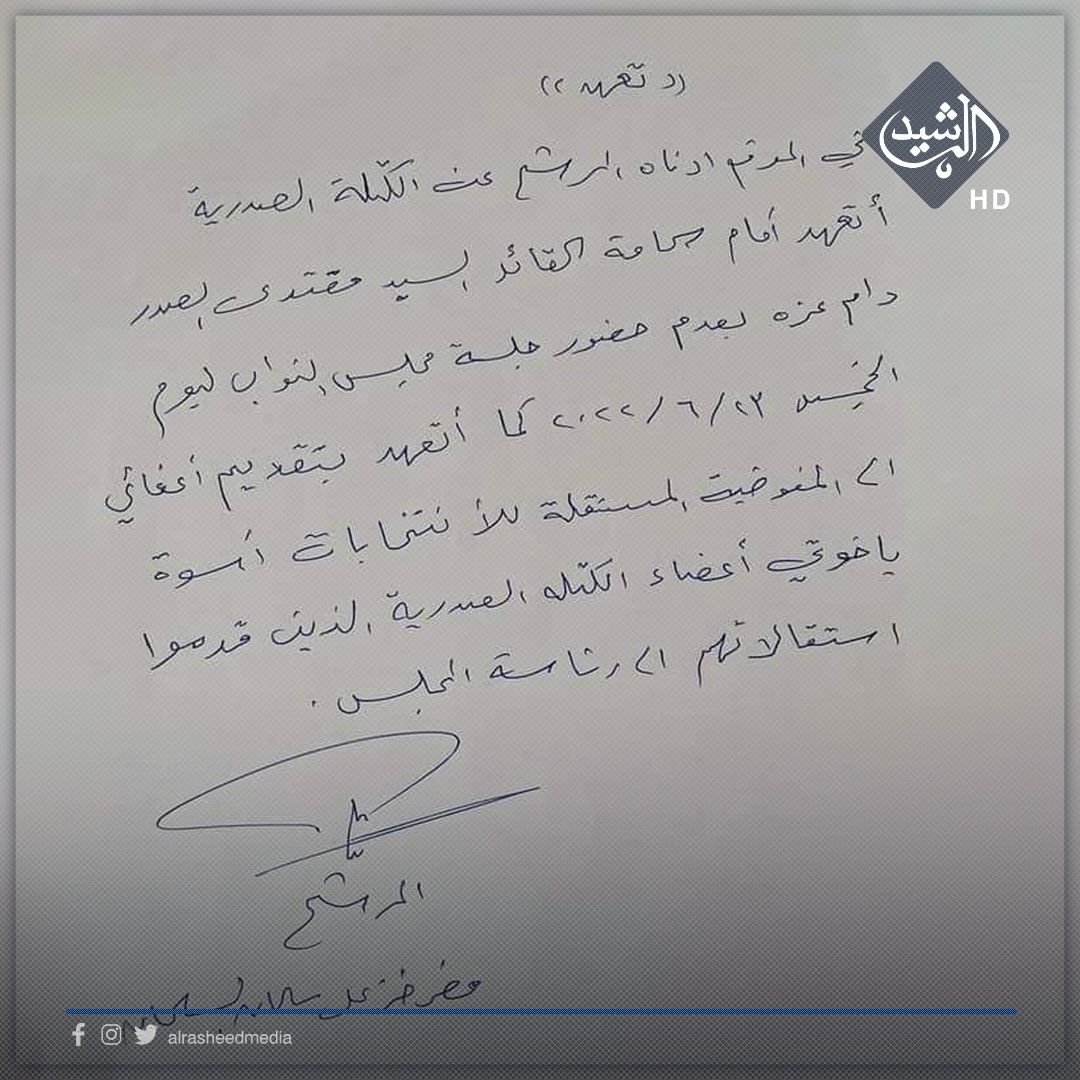 (( تعهد ))
الرشيد
HD
إني الموقع ادناه المرشح عن الكتلة الصدرية
أتعهد أمام سماحة القائد السيد مقتدى الصدر
دام عزه بعدم حضور جلسة مجلس النواب ليوم
الخميس ٢٠٢٢/٦/٢٣ كما أتعهد بتقديم أعفائي
الى المفوضية المستقلة للأنتخابات أسوة
باخوتي أعضاء الكتله الصدرية الذين قدموا
استقالاتهم الى رئاسة المجلس .
المرشح
مضر خزعل
alrasheedmedia